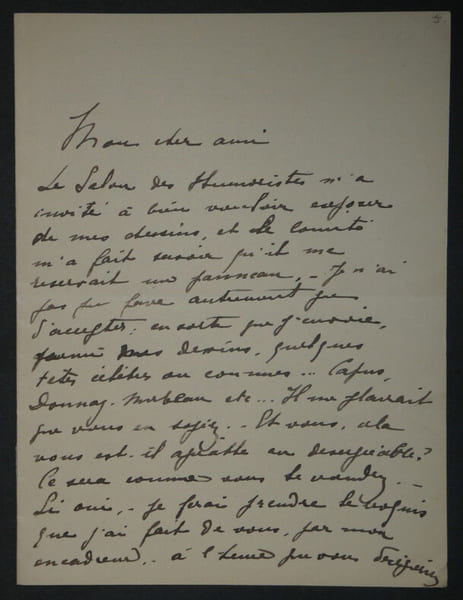 Mon cher ami
Le Salon des Humoristes m'a
invité à bien vouloir exposer
de mes dessins, et le Comité
m'a fait savoir qu'il me
réservait un panneau, - Je n'ai
pas pu faire autrement que
d'accepter; en sorte que j'envoie,
parmi mes dessins, quelques
têtes célèbres ou connues... Capus,
Donnay. Mirbeau etc... Il me plairait
que vous en soyez. - Et vous, cela
vous est-il agréable ou désagréable?
Ce sera comme vous le voudrez. -
Si oui, - je ferai prendre le croquis
que j'ai fait de vous, par mon
encadreur, - à l'heure que vous